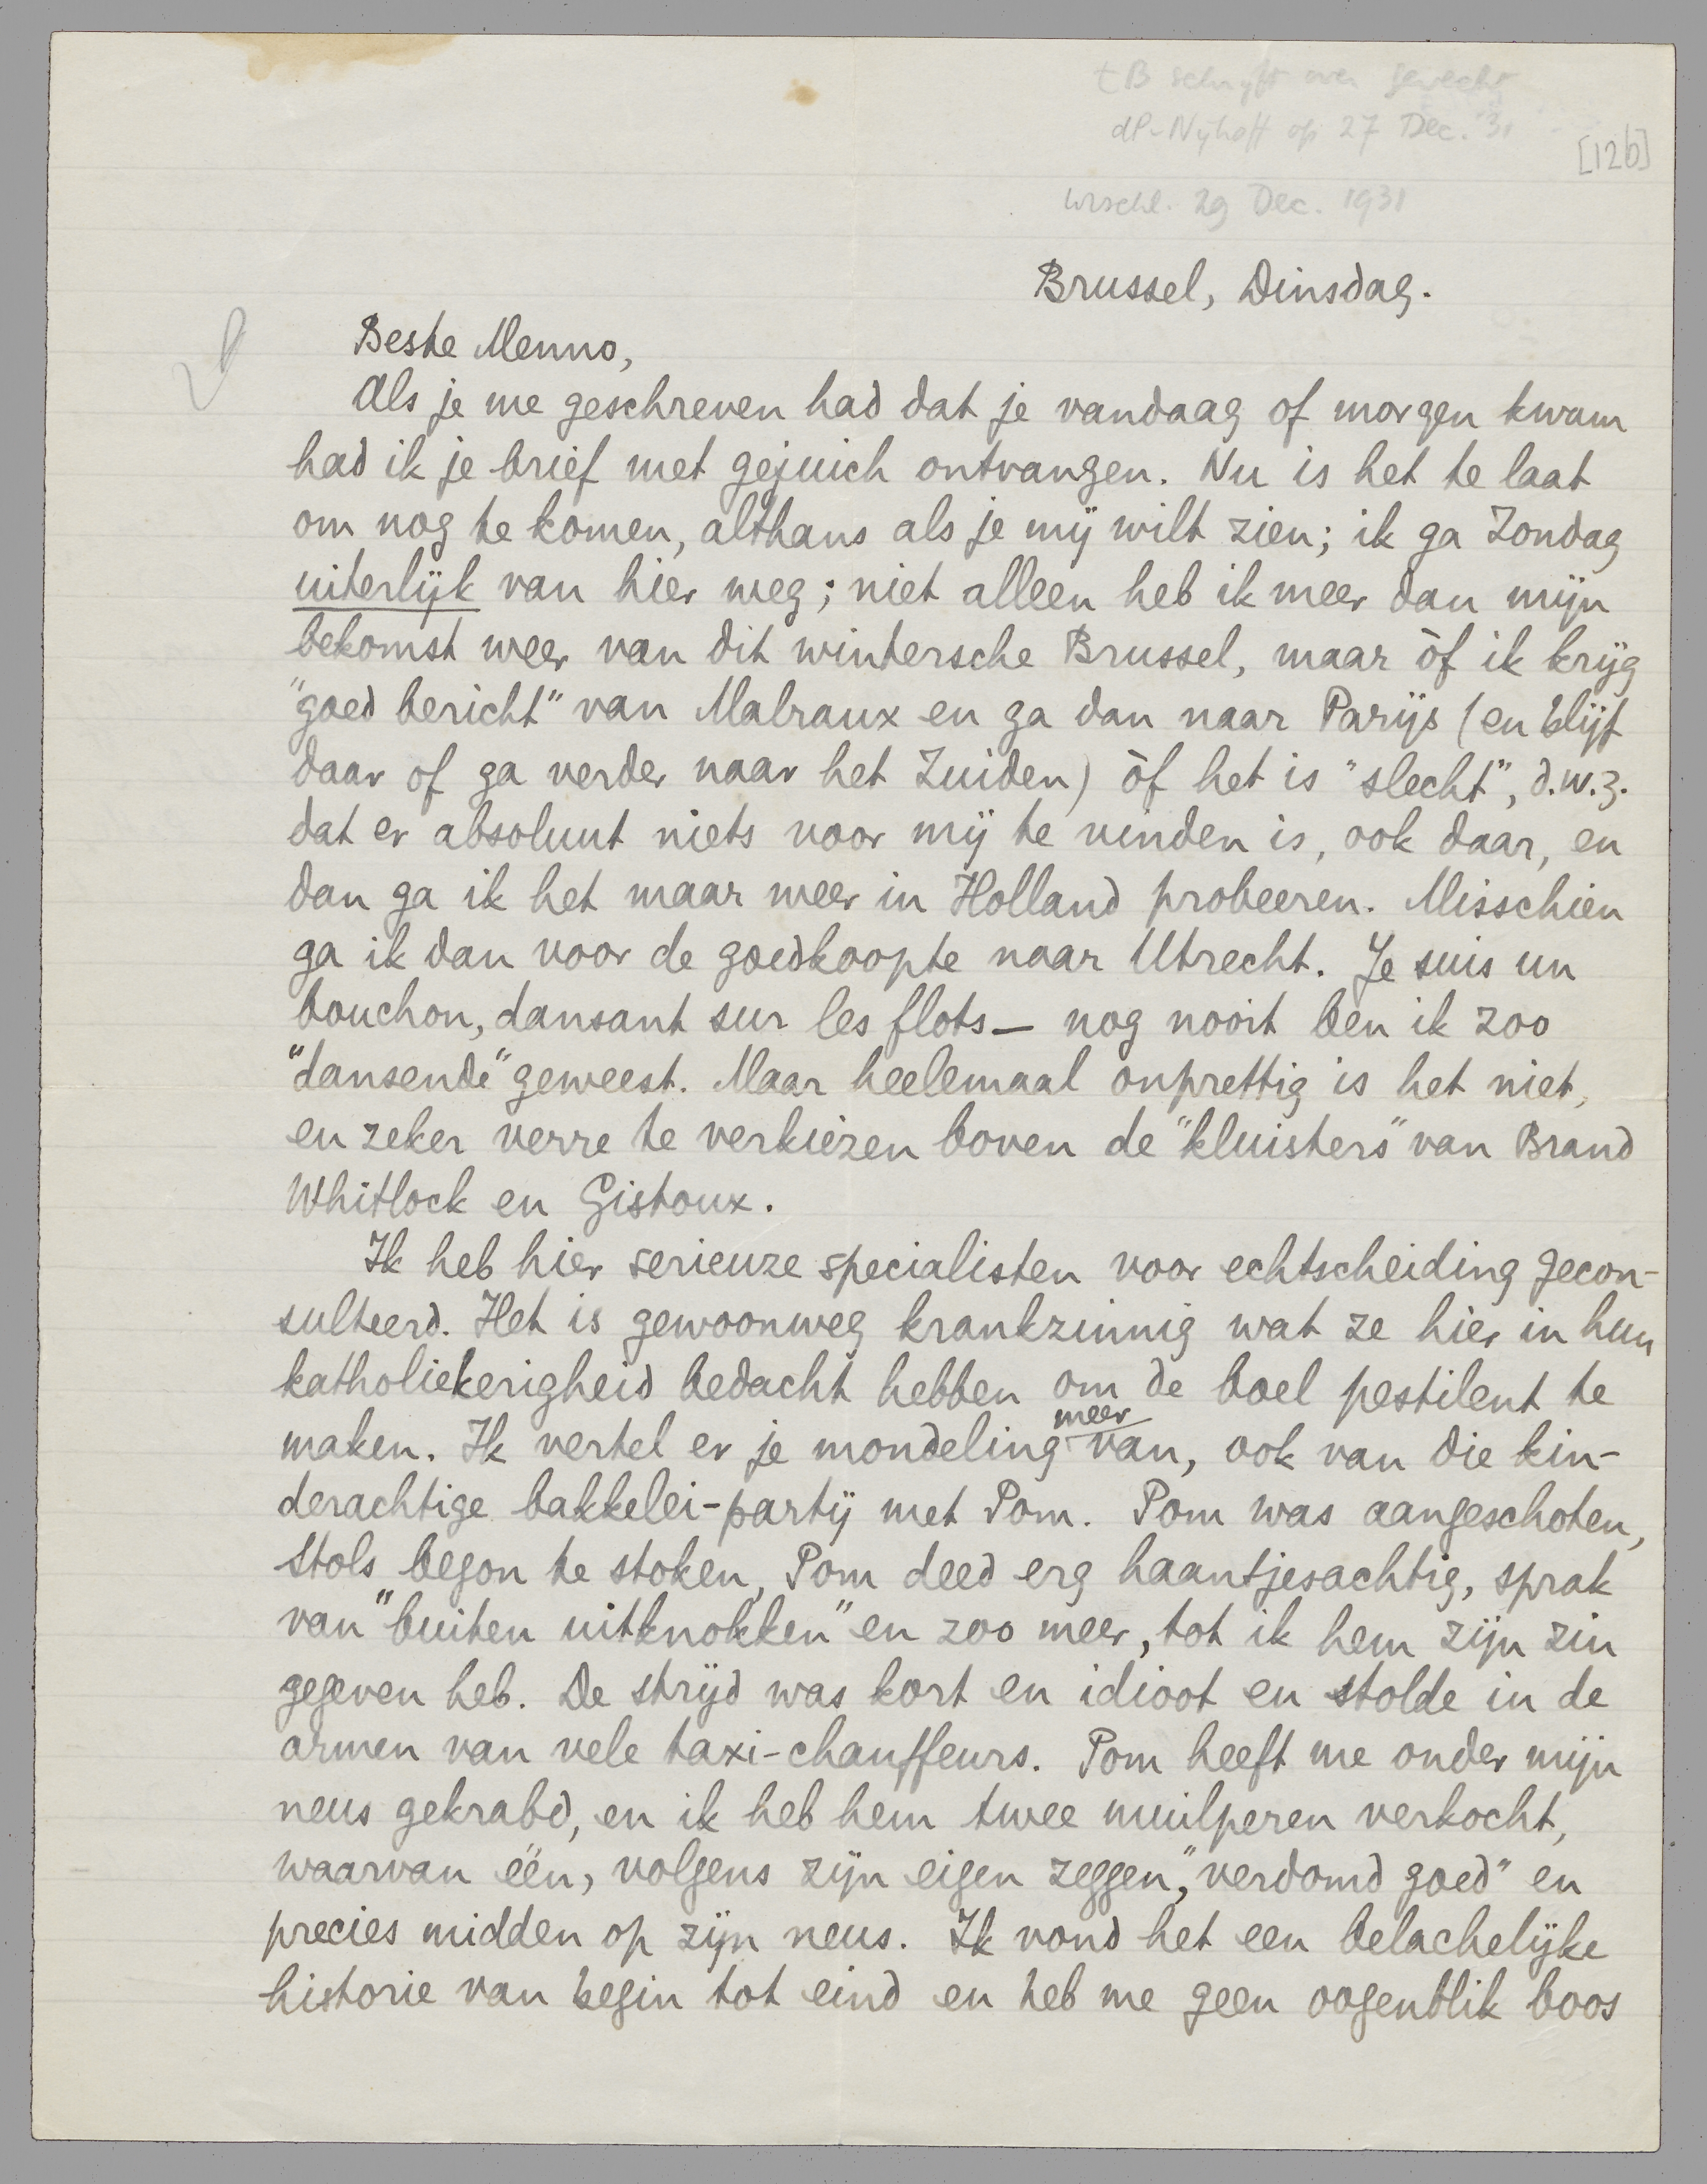 tB schrijft over gevecht
dP-Nijhoff op 27 Dec. '31
[12b]
wrschl. 29 Dec. 1931
Brussel, Dinsdag.
Beste Menno,
Als je me geschreven had dat je vandaag of morgen kwam
had ik je brief met gejuich ontvangen. Nu is het te laat
om nog te komen, althans als je mij wilt zien; ik ga Zondag
uiterlijk van hier weg; niet alleen heb ik meer dan mijn
bekomst weer van dit wintersche Brussel, maar òf ik krijg
"goed bericht" van Malraux en ga dan naar Parijs (en blijf
daar of ga verder naar het Zuiden) òf het is "slecht", d.w.z.
dat er absoluut niets voor mij te vinden is, ook daar, en
dan ga ik het maar weer in Holland probeeren. Misschien
ga ik dan voor de goedkoopte naar Utrecht. Je suis un
bouchon, dansant sur les flots — nog nooit ben ik zoo
"dansende" geweest. Maar heelemaal onprettig is het niet,
en zeker verre te verkiezen boven de "kluisters" van Brand
Whitlock en Gistoux.
Ik heb hier serieuze specialisten voor echtscheiding gecon-
sulteerd. Het is gewoonweg krankzinnig wat ze hier in hun
katholiekerigheid bedacht hebben om de boel pestilent te
maken. Ik vertel er je mondeling meer van, ook van die kin-
derachtige bakkelei-partij met Pom. Pom was aangeschoten,
Stols begon te stoken, Pom deed erg haantjesachtig, sprak
van "buiten uitknokken" en zoo meer, tot ik hem zijn zin
gegeven heb. De strijd was kort en idioot en stolde in de
armen van vele taxi-chauffeurs. Pom heeft me onder mijn
neus gekrabd, en ik heb hem twee muilperen verkocht,
waarvan één, volgens zijn eigen zeggen, "verdomd goed" en
precies midden op zijn neus. Ik vond het een belachelijke
historie van begin tot eind en heb me geen oogenblik boos